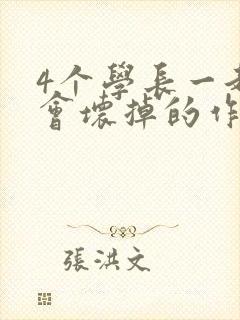 4个學長一
會壞掉的作
張洪文